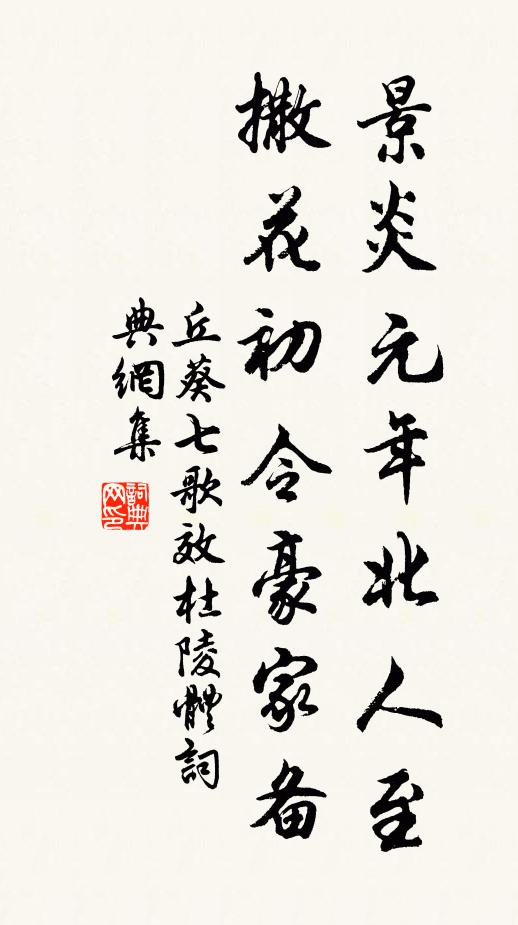 景炎元年北人至
撒花初令豪家备
丘葵七歌效杜陵體詞
典網集
詞典
网印